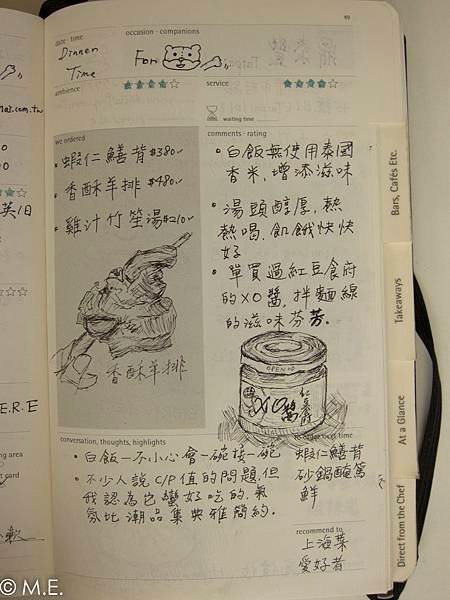 49
date · time
occasion · companions
Dinner
Time
For
ambience
service
waiting time
we ordered
comments · rating
• 蝦仁鱔背 $380.-
• 香酥羊排 $480.-
• 雞汁竹笙湯 $210.-
香酥羊排
• 白飯無使用泰國
香米，增添滋味
• 湯頭醇厚，熱
熱喝，飢餓快快
好
• 單買過紅豆食府
的XO醬，拌麵線
的滋味芬芳．
OPEN
XO醬
紅豆食府
conversation, thoughts, highlights
to order next time
• 白飯一不小心會一碗接一碗
• 不少人說C/P值的問題，但
我認為也蠻好吃的，氣
氛比潮品集典雅簡約．
蝦仁鱔背
砂鍋醃篤
鮮
recommend to
上海菜
愛好者
Bars, Cafés Etc.
Takeaways
At a Glance
Direct from the Chef
mai.com.tw
E.R.E
ing area
t card
© M.E.